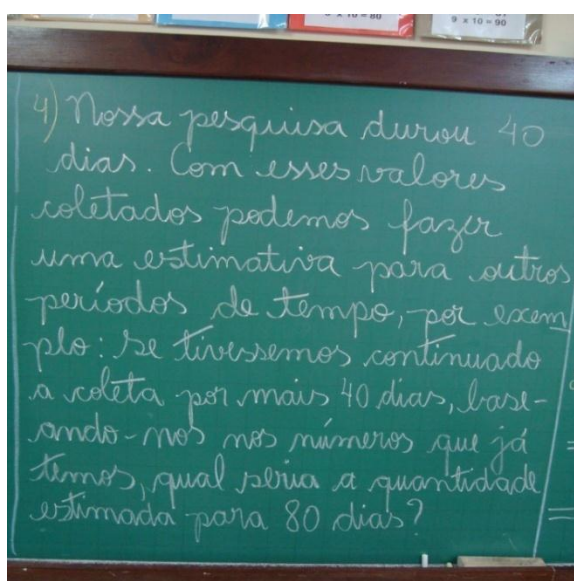 9 x 10 = 90
4) Nossa pesquisa durou 40
dias. Com esses valores
coletados podemos fazer
uma estimativa para outros
períodos de tempo, por exem
plo: se tivessemos continuado
a coleta por mais 40 dias, base-
ando-nos nos números que já
temos, qual seria a quantidade
estimada para 80 dias?